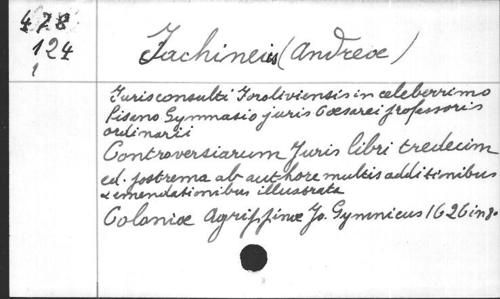 478
124
1
Fachineus (Andreæ)
Jurisconsulti Foroliviensis in celeberrimo
Pisano Gymnasio juris Cæsarei professoris
ordinarii
Controversiarum Juris libri tredecim
ed. postrema ab authore multis additionibus
& emendationibus illustrata
Coloniæ Agrippinæ Jo. Gymnicus 1626 in 8°